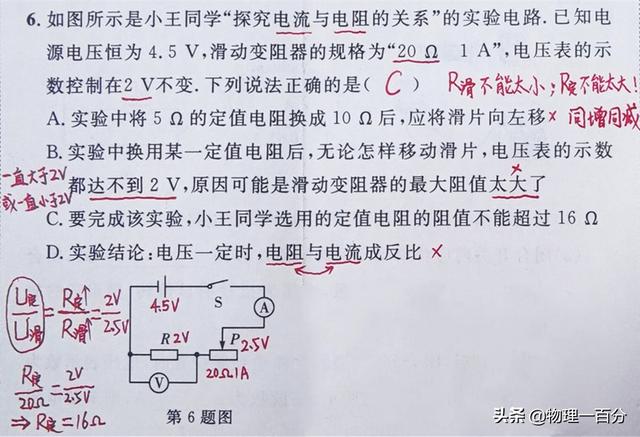 6. 如图所示是小王同学“探究电流与电阻的关系”的实验电路. 已知电
源电压恒为 4.5 V,滑动变阻器的规格为“20 Ω 1 A”,电压表的示
数控制在2 V不变. 下列说法正确的是( C ) R滑不能太小;R定不能太大!
A. 实验中将 5 Ω 的定值电阻换成 10 Ω 后,应将滑片向左移× 同增同减
B. 实验中换用某一定值电阻后,无论怎样移动滑片,电压表的示数
一直大于2V
或一直小于2V
都达不到 2 V,原因可能是滑动变阻器的最大阻值太大了 ×
C. 要完成该实验,小王同学选用的定值电阻的阻值不能超过 16 Ω
D. 实验结论:电压一定时,电阻与电流成反比 ×
U定/U滑=R定↑/R滑↑=2V/2.5V
R定/20Ω=2V/2.5V
⇒R定=16Ω
4.5V
S
A
R 2V
P 2.5V
20Ω1A
V
第 6 题图
头条 @物理一百分